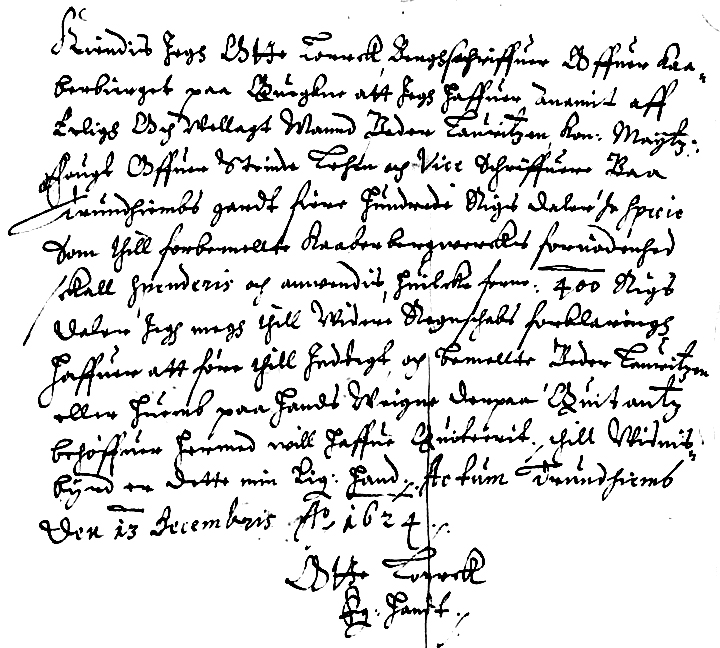 Kiendis Jegh Otte Lorck, Bergschriffuer Offuer Kaa-
berbierget paa Quegkne att Jegh haffuer Anamit aff
Erligh Och Wellagt Mannd Peder Lauritzen, Kon: Maytz:
fougt Offuer Strinde Lehen och Vice Schriffuere Paa
Trundhiembs gardt fiere Hundrede Rigs daler in specie
Som thill forbemellte Kaaberbergwerckes fornødenhed
skall spenderis och anwendis, huilcke forne: 400 Rigs
daler Jegh megh thill Widere Regnschabs forklaringh
haffuer att føre thill Indtegt, och bemellte Peder Lauritzen
eller huemb paa hands Weigne derpaa Quitantz
behøffuer hermed will haffue Quiterit. thill Widnis-
byrd er dette min Eig: Hand, Actum Trundhiemb
Den 13 decembris Ao. 1624.
Otte Lorck
Eg: handt.